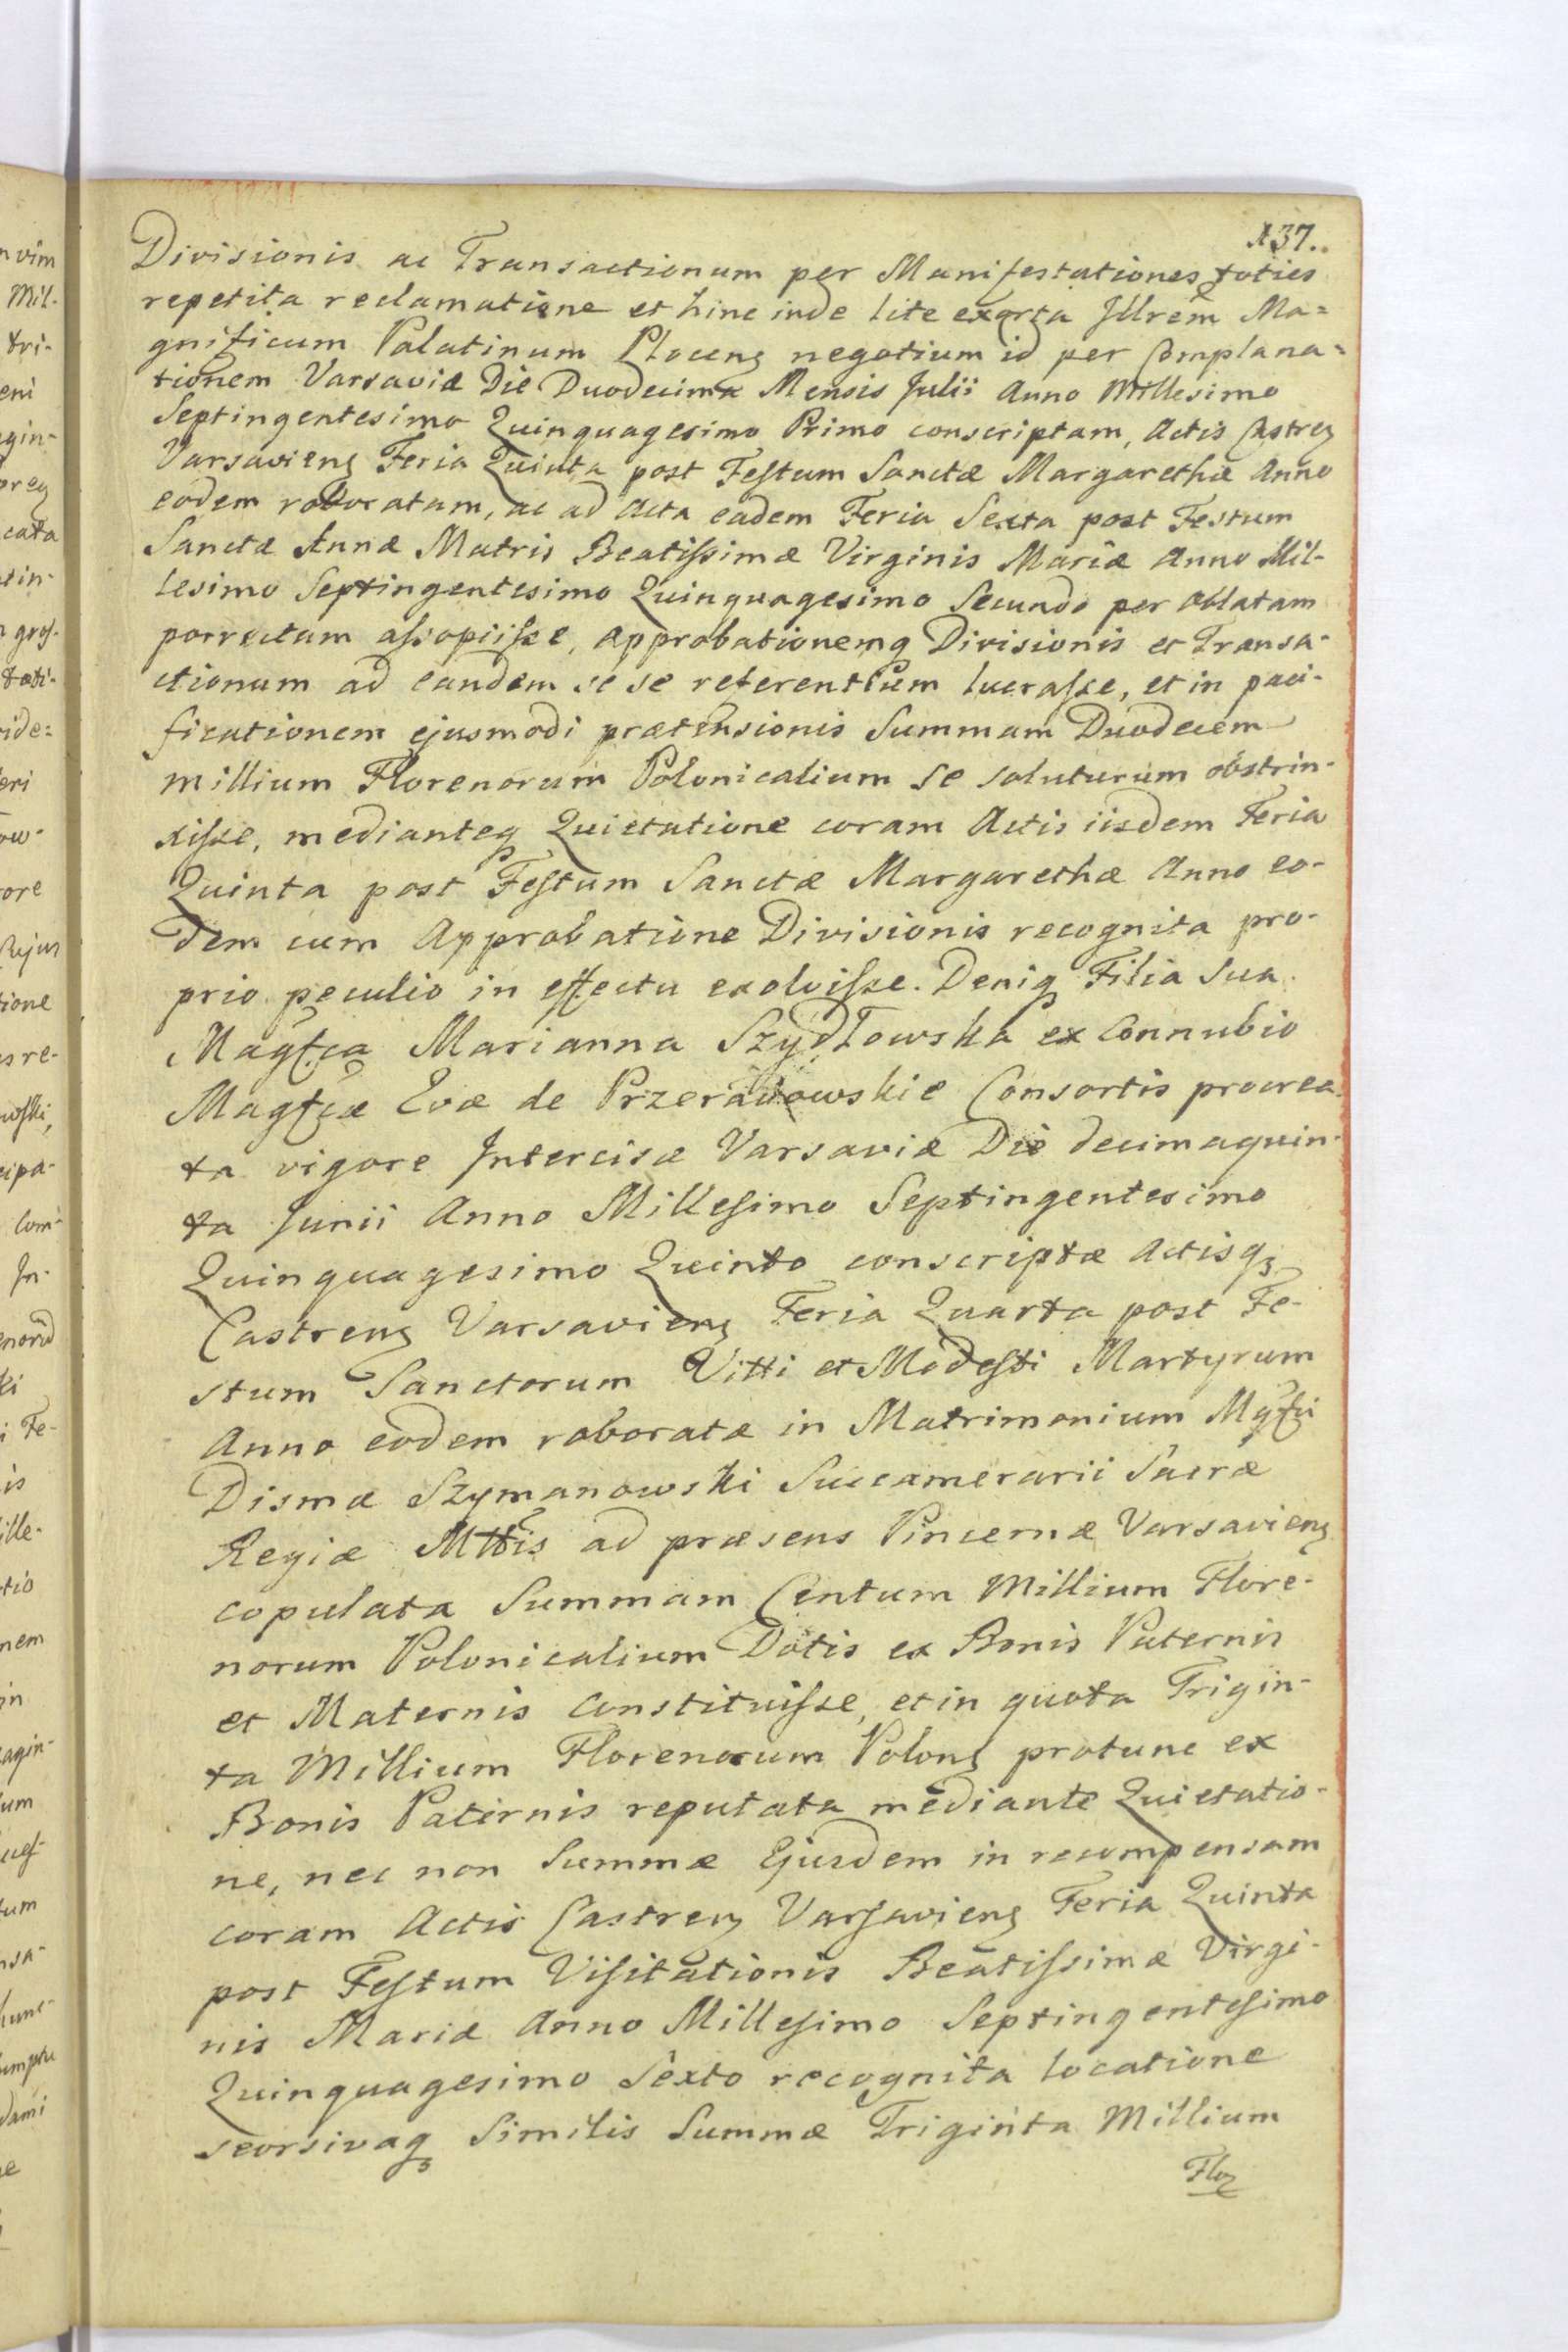 137.
Divisionis ac Transactionum per Manifestationes toties
repetita reclamatione et hinc inde lite exorta Illrem Ma=
gnificum Palatinum Plocenȝ negotium id per Complana=
tionem Varsaviæ Die Duodecima Mensis Julii Anno Millesimo
Septingentesimo Quinquagesimo Primo conscriptam, Actis Castreȝ
Varsavienȝ Feria Quinta post Festum Sanctæ Margarethæ Anno
eodem roboratam, ac ad Acta eadem Feria Sexta post Festum
Sanctæ Annæ Matris Beatissimæ Virginis Mariæ Anno Mil-
lesimo Septingentesimo Quinquagesimo Secundo per Oblatam
porrectam assopiisse, Approbationemq Divisionis et Transa-
ctionum ad eandem se se referentium lucrasse, et in paci-
ficationem ejusmodi prætensionis Summam Duodecem
Millium Florenorum Polonicalium se soluturum obstrin-
xisse, medianteq Quietatione coram Actis iisdem Feria
Quinta post Festum Sanctæ Margarethæ Anno eo-
dem cum Approbatione Divisionis recognita pro-
prio peculio in effectu exolvisse. Deniq Filia Sua
Magfca Marianna Szydłowska ex Connubio
Magfcæ Evæ de Przeradowskie Consortis procrea-
ta vigore Intercisæ Varsaviæ Die decimaquin-
ta Junii Anno Millesimo Septingentesimo
Quinquagesimo Quinto conscriptæ Actisqȝ
Castrenȝ Varsavienȝ Feria Quarta post Fe-
stum Sanctorum Vitti et Modesti Martyrum
Anno eodem roboratæ in Matrimonium Mgfci
Dismæ Szymanowski Succamerarii Sacræ
Regiæ Mttis ad præsens Pincernæ Varsavienȝ
copulata Summam Centum Millium Flore-
norum Polonicalium Dotis ex Bonis Paternis
et Maternis constituisse, et in quota Trigin-
ta Millium Florenorum Polonȝ protunc ex
Bonis Paternis reputata mediante Quietatio-
ne, nec non Summæ Ejusdem in recompensam
coram Actis Castrenȝ Varsavienȝ Feria Quinta
post Festum Visitationis Beatissimæ Virgi-
nis Mariæ Anno Millesimo Septingentesimo
Quinquagesimo Sexto recognita locatione
seorsivaqȝ Similis Summæ Triginta Millium
Floȝ